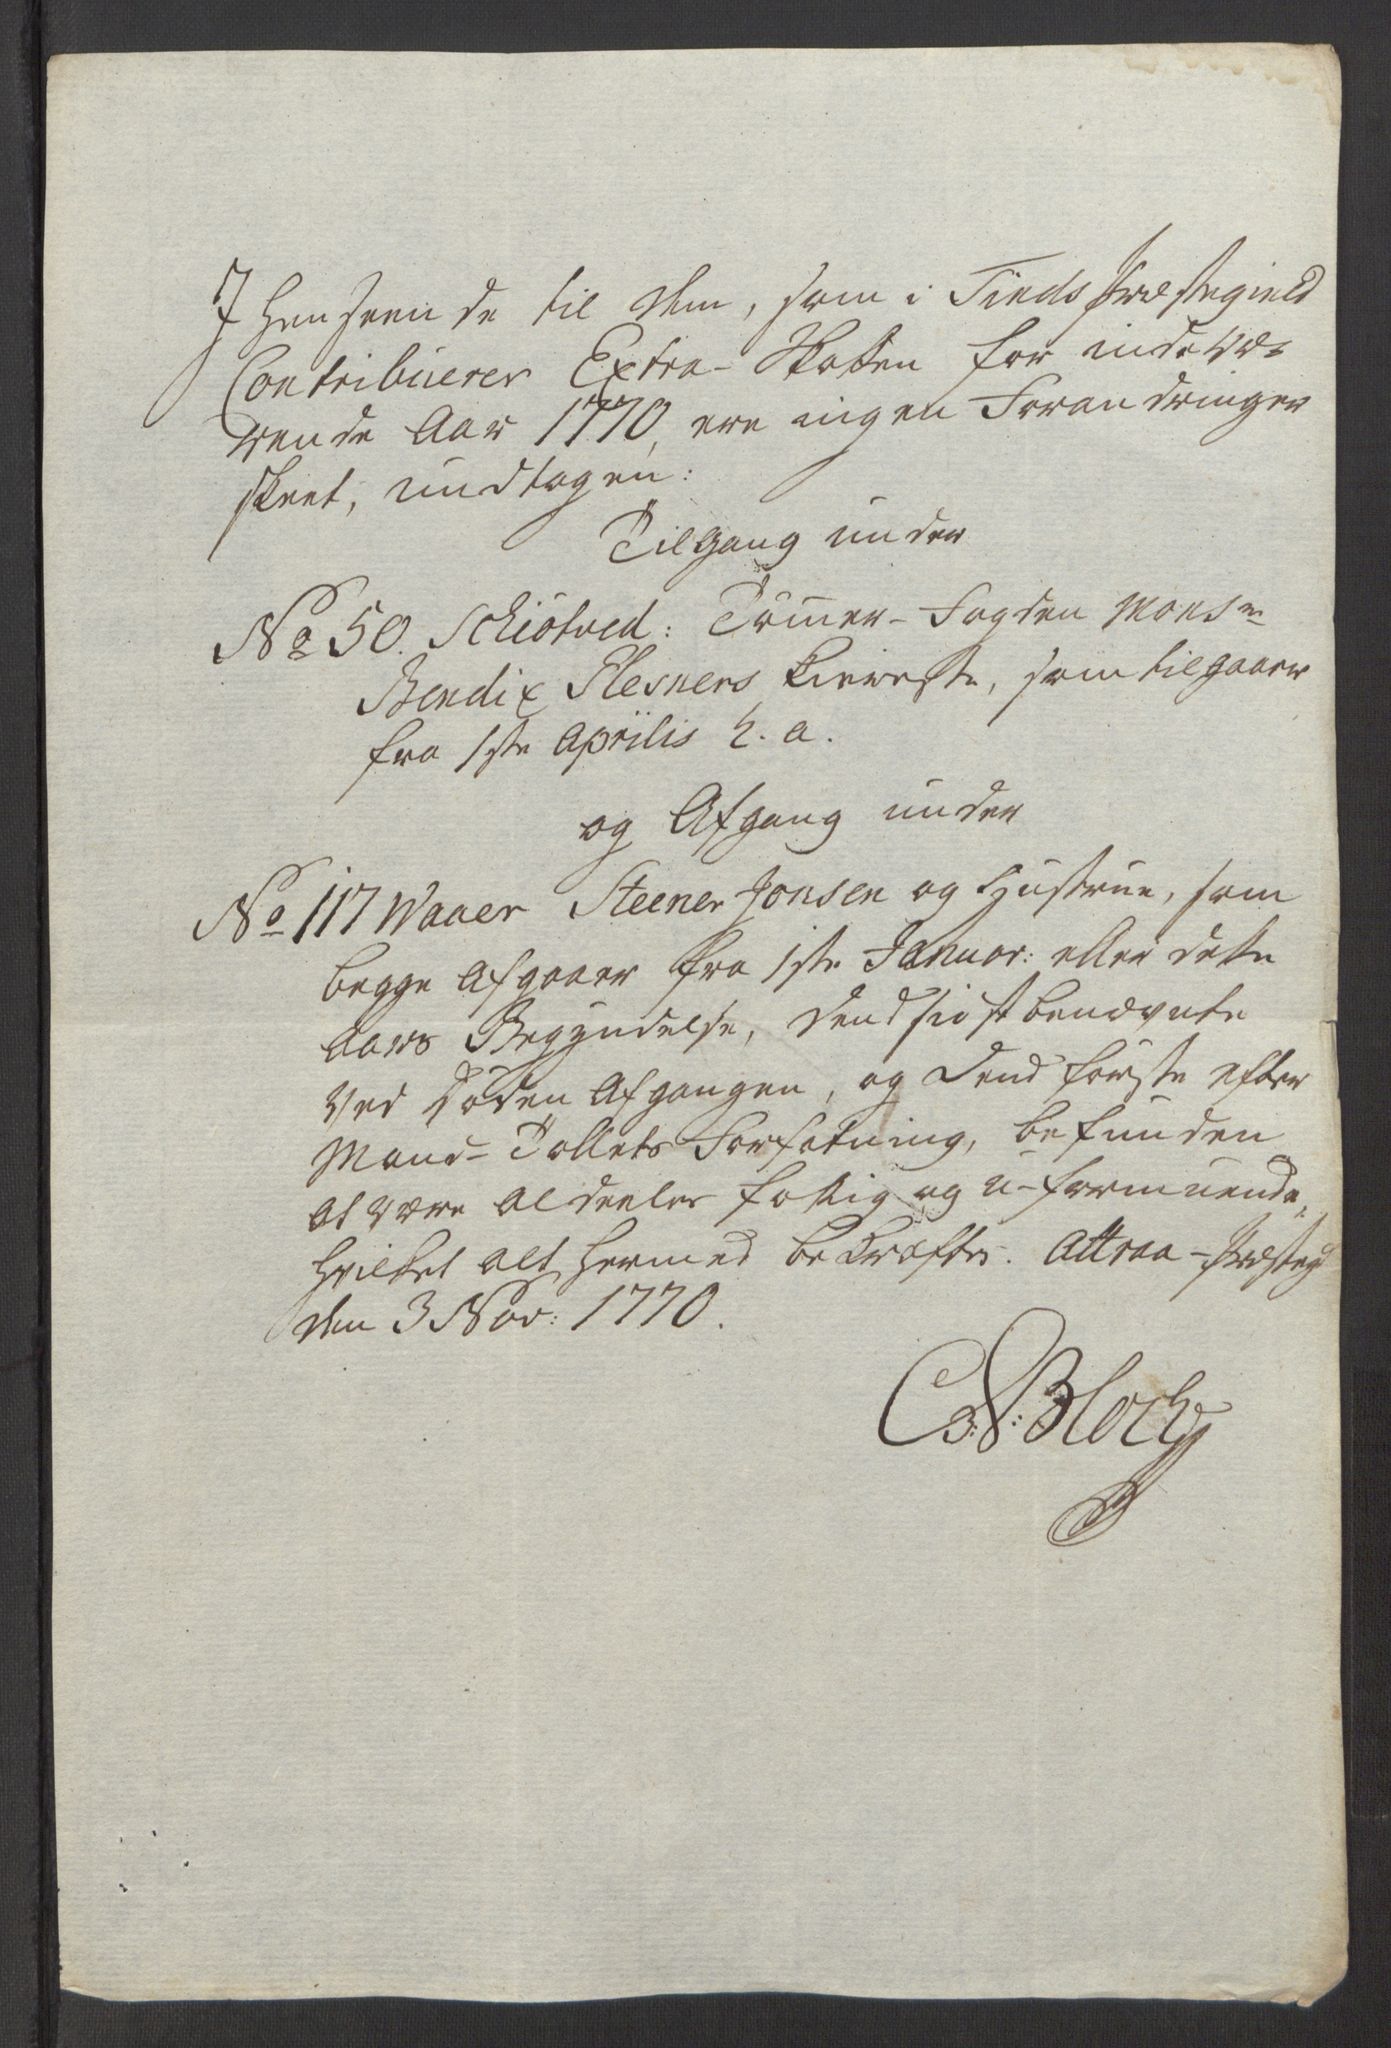 I henseende til dem, som i Tinds Præstegield
Contribuerer Extra-Skatten for indevæ-
rende Aar 1770, ere ingen Forandringer
skeet, undtagen:
Tilgang under
No 50. Schiötved: Tömmer-Fogden Monsr
Bendix Elesners Kiereste, som tilgaaer
fra 1ste Aprilis h. a.
og Afgang under
No 117 Waaer Steener Jonsen og Hustrue, som
begge Afgaaer fra 1ste Januar: eller dette
Aars Begyndelse, Dend sidst benævnte
ved Döden Afgangen, og Dend förste efter
Mand-Tallets Forfatning, befunden
at være aldeeles fattig og u-formuende,
hvilket alt hermed bekræftes. Attraa-Præstegd
den 3 Nov: 1770.
C: N: Bloch